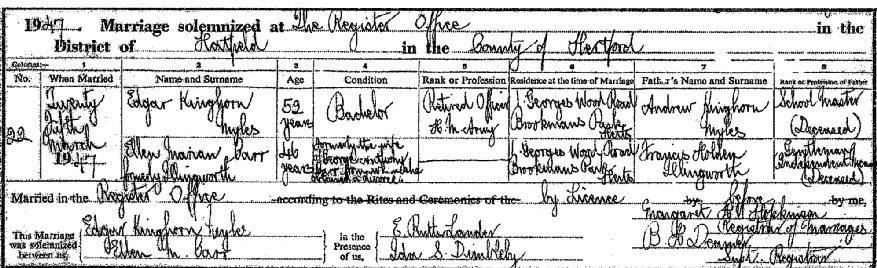 1947. Marriage solemnized at The Register Office in the
District of Hatfield in the County of Hertford
Columns:— 1 2 3 4 5 6 7 8
No. When Married Name and Surname Age Condition Rank or Profession Residence at the time of Marriage Father's Name and Surname Rank or Profession of Father
22 Twenty Fifth March 1947 Edgar Kinghorn Myles 52 years Bachelor Retired Officer H.M. Army Georges Wood Road Brookmans Park Herts Andrew Kinghorn Myles School Master (Deceased)
Ellen Marian Carr formerly Illingworth 46 years formerly the wife of George Carr from whom she obtained a divorce Georges Wood Road Brookmans Park Herts Francis Holden Illingworth Gentleman Independent means (Deceased)
Married in the Register Office according to the Rites and Ceremonies of the by Licence before by me,
This Marriage was solemnized between us, Edgar Kinghorn Myles
Ellen M. Carr
in the Presence of us, E. Rutter Lander
Ida S. Dimbleby
Margaret Hopkinson Registrar of Marriages
Supt. Registrar